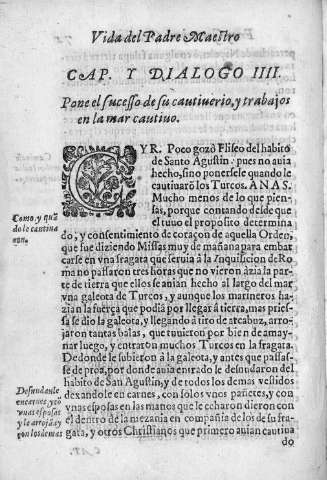 Vida del Padre Maestro
CAP. Y DIALOGO IIII.
Pone el sucesso de su cautiuerio, y trabajos
en la mar cautiuo.
CYR. Poco gozò Eliseo del habito
de Santo Agustin: pues no auia
hecho, sino ponersele quando le
cautiuarõ los Turcos. ANAS.
Mucho menos de lo que pien-
sas, porque contando desde que
el tuuo el proposito determina
do; y consentimiento de coraçon de aquella Orden,
que fue diziendo Missas muy de mañana para embar
carse en vna fragata que seruia à la Inquisicion de Ro
ma no passaron tres horas que no vieron àzia la par-
te de tierra que ellos auian hecho al largo del mar
vna galeota de Turcos, y aunque los marineros ha-
zian la fuerça que podià por llegar à tierra, mas pries-
sa se dio la galeota, y llegando à tiro de arcabuz, arro-
jaron tantas balas, que tuuieron por bien de amay-
nar luego, y entraron muchos Turcos en la fragata.
De donde le subieron à la galeota, y antes que passas-
se de proa, por donde auia entrado le desnudaron del
habito de San Agustin, y de todos los demas vestidos
dexandole en carnes, con solos vnos pañetes, y con
vnas esposas en las manos que le echaron dieron con
el dentro de la mezania en compañia de los de su fra-
gata, y otros Christianos que primero auian cautiua
do
Como, y quã
do le cautiua
ron.
Desnudanle
en carnes, y cõ
vnas esposas
y le arrojã cõ
con los demas